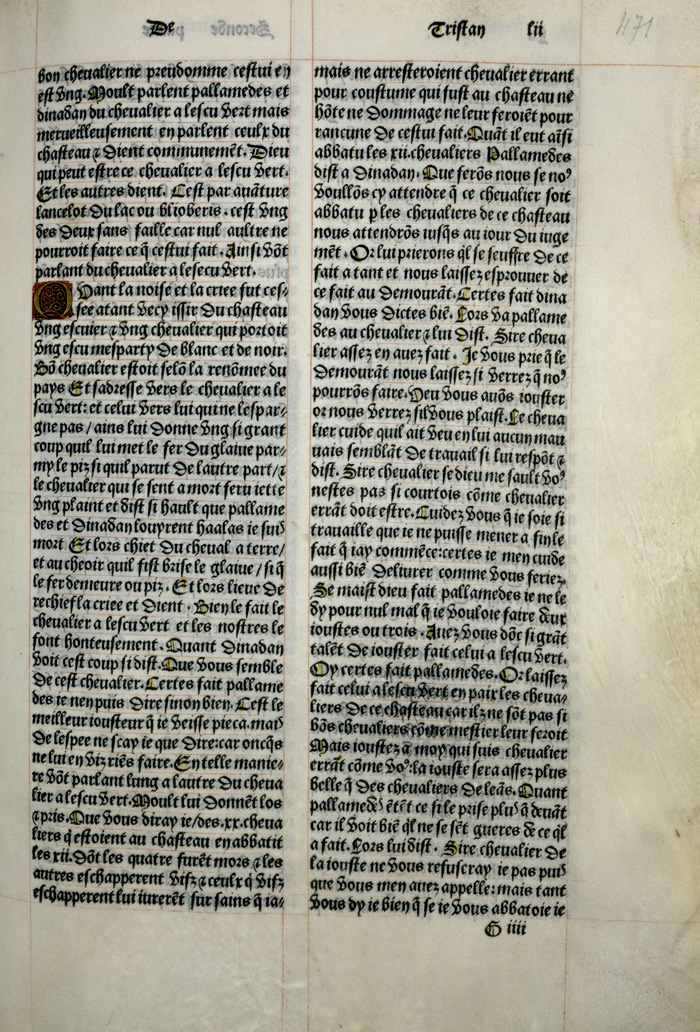 De
Tristan lii
471
bon cheualier ne preudomme cestui en
est vng. Moult parlent pallamedes et
dinadan du cheualier a lescu vert mais
merueilleusement en parlent ceulx du
chasteau ⁊ dient communemēt. Dieu
qui peut estre ce cheualier a lescu vert.
Et les autres dient. Cest par auāture
lancelot du lac ou blioberis. cest vng
des deux sans faille car nul aultre ne
pourroit faire ce q̄ cestui fait. Ainsi vōt
parlant du cheualier a lesecu vert.
Quant la noise et la criee fut ces⸗
see atant vecy issir du chasteau
vng escuier ⁊ vng cheualier qui portoit
vng escu mesparty de blanc et de noir.
Bō cheualier estoit selō la renōmee du
pays Et sadresse vers le cheualier a le
scu vert: et celui vers lui qui ne lespar⸗
gne pas / ains lui donne vng si grant
coup quil lui met le fer du glaiue par⸗
my le piz si quil parut de lautre part / ⁊
le cheualier qui se sent a mort feru iette
vng plaint et dist si hault que pallame
des et dinadan louyrent haalas ie suis
mort Et lors chiet du cheual a terre /
et au cheoir quil fist brise le glaiue / si q̄
le fer demeure ou piz. Et lors lieue de
rechief la criee et dient. Bien le fait le
cheualier a lescu vert et les nostres le
font honteusement. Quant dinadan
voit cest coup si dist. Que vous semble
de cest cheualier. Certes fait pallame
des ie nen puis dire sinon bien. Cest le
meilleur iousteur q̄ ie veisse pieca. mais
de lespee ne scay ie que dire: car oncq̄s
ne lui en viz riēs faire. En telle manie⸗
re vōt parlant lung a lautre du cheua
lier a lescu vert. Moult lui donnēt los
⁊ pris. Que vous diray ie / des .xx. cheua
liers q̄ estoient au chasteau en abbatit
les xii. dōt les quatre furēt mors ⁊ les
autres eschapperent vifz ⁊ ceulx q̄ vifz
eschapperent lui iurerēt sur sains q̄ ia⸗
mais ne arresteroient cheualier errant
pour coustume qui fust au chasteau ne
hōte ne dommage ne leur feroiēt pour
rancune de cestui fait. Quāt il eut aīsi
abbatu les xii. cheualiers Pallamedes
dist a dinadan. Que ferōs nous se noꝰ
voullōs cy attendre q̄ ce cheualier soit
abbatu ꝑ les cheualiers de ce chasteau
nous attendrōs iusq̄s au iour du iuge
mēt. Or lui prierons q̄l se seuffre de ce
fait a tant et nous laissez esprouuer de
ce fait au demourāt. Certes fait dina
dan vous dictes biē. Lors va pallame
des au cheualier ⁊ lui dist. Sire cheua
lier assez en auez fait. Je vous prie q̄ le
demourāt nous laissez si verrez q̄ noꝰ
pourrōs faire. Veu vous auōs iouster
or nous verrez sil vous plaist. Le cheua
lier cuide quil ait veu en lui aucun mau
uais semblāt de trauail si lui respōt ⁊
dist. Sire cheualier se dieu me sault voꝰ
nestes pas si courtois cōme cheualier
errāt doit estre. Cuidez vous q̄ ie soie si
trauaille que ie ne puisse mener a fin le
fait q̄ iay commēce: certes ie men cuide
aussi biē deliurer comme vous feriez.
Se maist dieu fait pallamedes ie ne le
dy pour nul mal q̄ ie vouloie faire deux
ioustes ou trois. Auez vous dōc si grāt
talēt de iouster fait celui a lescu vert.
Oy certes fait pallamedes. Or laissez
fait celui a lescu vert en paix les cheua⸗
liers de ce chasteau car ilz ne sōt pas si
bōs cheualiers cōme mestier leur seroit
Mais ioustez a moy qui suis cheualier
errāt cōme voꝰ: la iouste sera assez plus
belle q̄ des cheualiers de leās. Quant
pallamedes ētēt ce si le prise plus q̄ deuāt
car il voit biē q̄l ne se sēt gueres de ce q̄l
a fait. Lors lui dist. Sire cheualier de
la iouste ne vous refuseray ie pas puis
que vous men auez appelle: mais tant
vous dy ie bien q̄ se ie vous abbatoie ie
G iiii